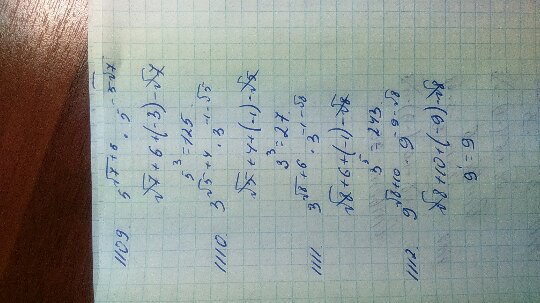 1109 5^(√7+6) · 5^(-3-√7)
√7+6+(-3)-√7
5³=125
1110. 3^(√5+4) · 3^(-1-√5)
√5+4+(-1)-√5
3³=27
1111 3^(√8+6) · 3^(-1-√8)
√8+6+(-1)-√8
3⁵=243
1112. 9^(√8+10) · 9^(-9-√8)
√8+10+(-9)-√8
9¹=9